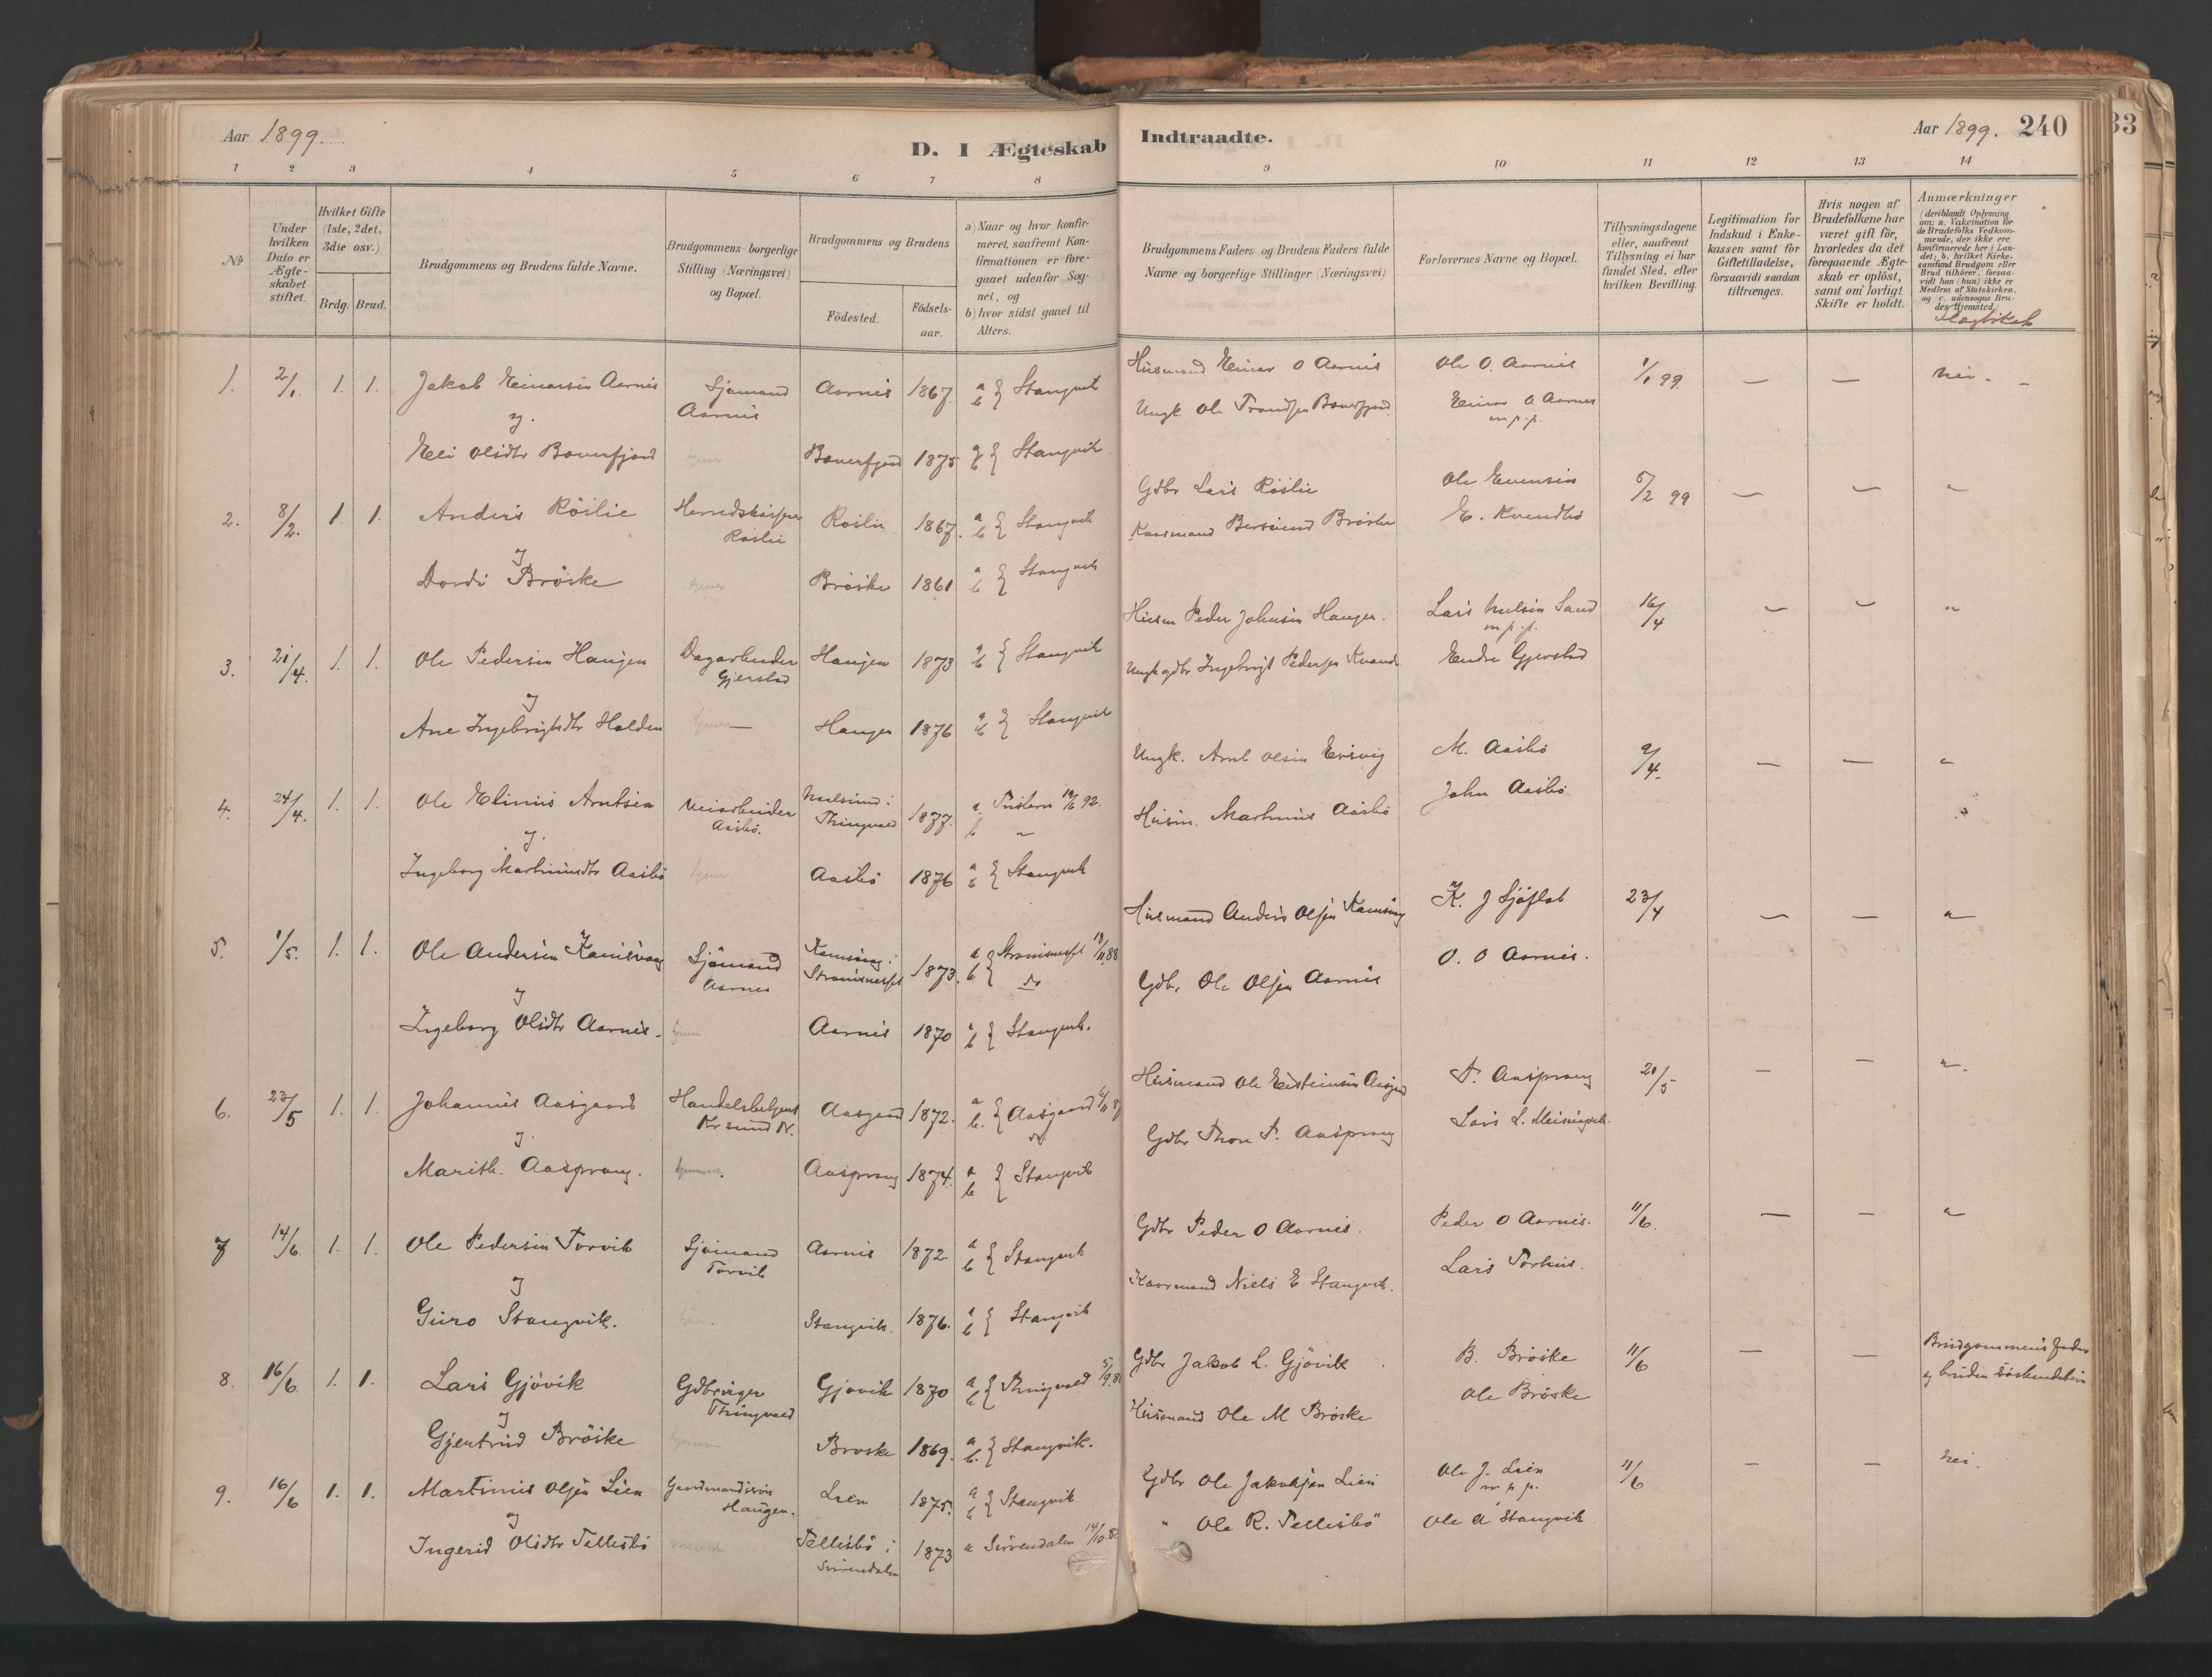 Aar 1899.
D. I Ægteskab
Indtraadte.
Aar 1899. 240
33
1 2 3 4 5 6 7 8 9 10 11 12 13 14
No
Under hvilken Dato er Ægteskabet stiftet.
Hvilket Gifte (1ste, 2det, 3die osv.)
Brdg. Brud.
Brudgommens og Brudens fulde Navne.
Brudgommens borgerlige Stilling (Næringsvei) og Bopæl.
Brudgommens og Brudens
Födested.
Födselsaar.
a) Naar og hvor konfirmeret, saafremt Konfirmationen er foregaaet udenfor Sognet, og
b) hvor sidst gaaet til Alters.
Brudgommens Faders og Brudens Faders fulde Navne og borgerlige Stillinger (Næringsvei)
Forlovernes Navne og Bopæl.
Tillysningsdagene eller, saafremt Tillysning ei har fundet Sted, efter hvilken Bevilling.
Legitimation for Indskud i Enkekassen samt for Giftetilladelse, forsaavidt saadan tiltrænges.
Hvis nogen af Brudefolkene har været gift för, hvorledes da det foregaaende Ægteskab er oplöst, samt om lovligt Skifte er holdt.
Anmærkninger
(deriblandt Oplysning om: a. Vakcination for de Brudefolks Vedkommende, der ikke ere konfirmerede her i Landet; b. hvilket Kirkesamfund Brudgom eller Brud tilhörer, forsaavidt han (hun) ikke er Medlem af Statskirken, og c. udensogns Brudes Hjemsted.
Slægtskab
1. 2/1. 1. 1. Jakob Einarsen Aarnes Sjömand Aarnes Aarnes 1867. a b } Stangvik
og
Eli Olsdtr Bæverfjord Bæverfjord 1875 a b } Stangvik
Husmand Einar O Aarnes Ole O. Aarnes 1/1 99. — — nei. —
Ungk. Ole Trondsen Bæverfjord. Einar O. Aarnes m. p. p.
2. 8/2. 1. 1. Anders Röslie Herredskasserer Röslie Röslie 1867. a b } Stangvik
og
Dordi Bröske Bröske 1861 a b } Stangvik
Gdbr Lars Röslie Ole Evensen 5/2 99 — — "
Kaarmand Bersvend Bröske E. Kvendbö
3. 21/4. 1. 1. Ole Pedersen Haugen Dagarbeider Gjerstad Haugen 1873 a b } Stangvik
og
Ane Ingebrigtsdtr Halden — Haugen 1876 a b } Stangvik
Husm Peder Johnsen Haugen. Lars Nielsen Sand m. p. p. 16/4 — — "
Ungk gdbr Ingebrigt Pedersen Endre Gjerstad
4. 24/4. 1. 1. Ole Elinius Arntsen Veiarbeider Aasbö. Thingvold 1877. a. Tustern 19/6 92. b "
og
Ingeborg Martinusdtr Aasbö Aasbö 1876 a b } Stangvik
Ungk. Arnt Olsen M. Aasbö 9/4. — — "
Husm. Martinus Aasbö John Aasbö
5. 1/5. 1. 1. Ole Andersen Sjömand Aarnes Strømsnesset 1873. a b { Strømsnesset do
og
Ingeborg Olsdtr Aarnes. Aarnes 1870 a b } Stangvik.
Husmand Anders Olsen K. J Sjöflot 23/4 — — "
Gdbr. Ole Olsen Aarnes O. O Aarnes.
6. 23/5 1. 1. Johannes Aasgaard Handelsbetjent Kr.sund N. Aasgaard 1872. a b. { Aasgaard do
og
Marith. Aasprong. Aasprong 1874. a b } Stangvik
Husmand Ole T. Aasprong 21/5 — — "
Gdbr Thore T. Aasprong Lars L. Meisingset.
7 14/6 1. 1. Ole Pedersen Torvik Sjömand Torvik Aarnes 1872. a b } Stangvik
og
Guro Stangvik. Stangvik. 1876. a b } Stangvik
Gdbr Peder O Aarnes. Peder O Aarnes. 11/6. — — "
Kaarmand Niels E Stangvik. Lars Torhus.
8. 16/6 1. 1. Lars Gjövik Gdbruger Thingvold Gjövik 1870 a b } Thingvold
og
Gjertrud Bröske Broske 1869. a b. } Stangvik.
Gdbr Jakob L. Gjövik B. Bröske 11/6 — — Brudgommens Fader og bruden Söskendebörn
Husmand Ole M Bröske Ole Bröske
9. 16/6 1. 1. Martinus Olsen Lien Haugen. Lien 1875. a b } Stangvik
og
Ingerid Olsdtr Tellesbö Tellesbö i Surendalen 1873 a Surendalen
Gdbr Ole Jakobsen Lien Ole J. Lien m. p. p. 11/6 — — nei.
" Ole R. Tellesbö Ole A Stangvik